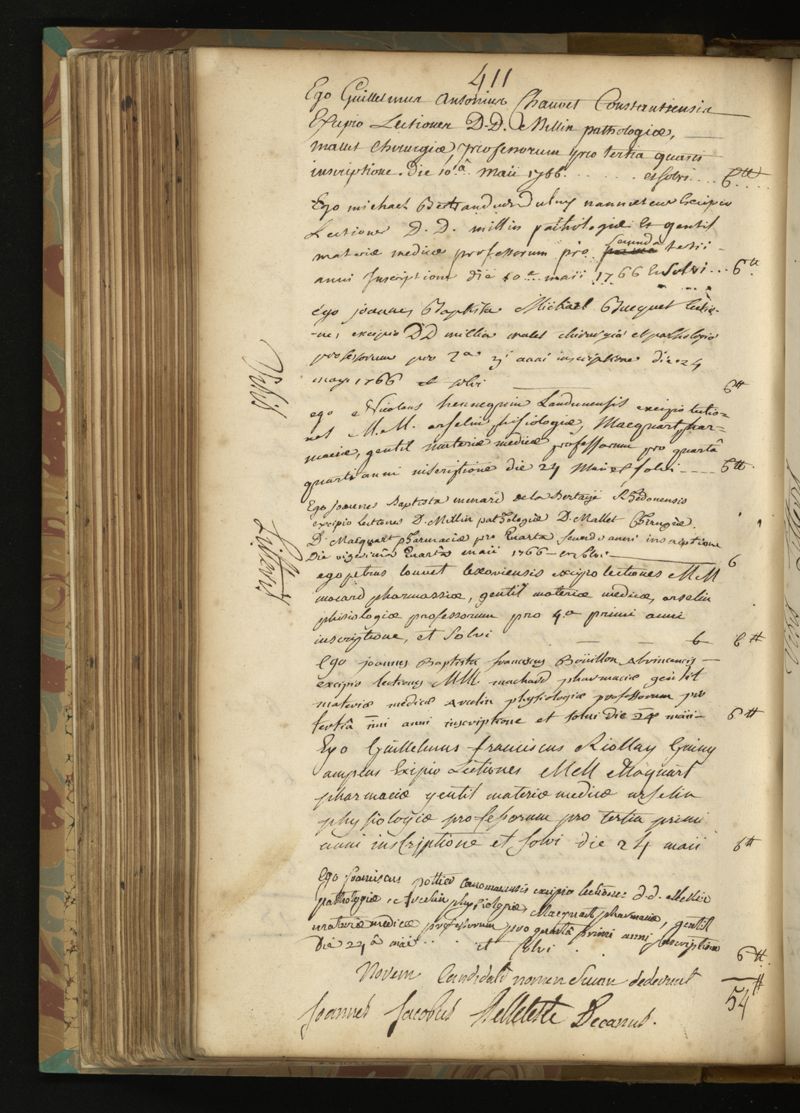 411
Ego Guillelmus Antonius Chauvet Constantiensis
Excipio Lectiones D.D. Millin pathologiæ,
mallet chirurgiæ, professorum pro tertia quarti
inscriptione. Die 10.â Maii 1766. et solvi 6tt
Ego michael Bertrand nannetensis Excipio
Lectiones D. D. millin pathologiæ Et gentil
materiæ medicæ professorum pro secunda tertii
anni Inscriptione die 10.a maii 1766 Et Solvi 6tt
ego joannes Baptista Michael Bucquet lectio-
-nes excipio DD millin malet chirurgiæ et pathologiæ
professorum pro 2.a 3i anni inscriptione die 24
maii 1766 et solvi 6tt
ego Nicolaus hennequin Laudunensis excipio lectio-
nes M.M. arselin phisiologiæ, Macquart phar-
maciæ, gentil materiæ medicæ professorum pro quartâ
quarti anni inscriptione die 24 Maii et solvi 6tt
Ego Joannes Baptista menard de la Rhedonensis
excipio lectiones D. Millin pathologiæ D. Mallet Chirurgiæ.
D. Macquart pharmaciæ pro Quarta secundi anni inscriptione
Die vigesima Quarta maii 1766 et solvi 6
ego petrus louvet lexoviensis excipio lectiones MM
macard pharmaciæ, gentil materiæ medicæ, arselin
phisiologiæ professorum pro 4.a primi anni
inscriptione, et Solvi 6 6tt
Ego joannes Baptista franciscus Boüillon Abrincensis
excipio lectiones MM. machard pharmaciæ gentil
materiæ medicæ arcelin physiologiæ professorum pro
tertiâ anni inscriptione et solvi die 24 maii 6tt
Ego Guillelmus franciscus Riollay
Excipio Lectiones MM Maquart
pharmaciæ gentil materiæ medicæ arselin
physiologiæ professorum pro tertia primi
anni inscriptione et solvi die 24 maii 6tt
Ego franciscus pottier cenomanensis excipio lectiones d.d.
pathologiæ, Arcelin physiologiæ, Macquart pharmaciæ, gentil
materiæ medicæ professorum pro quarta primi anni inscriptione
Die 24â maii et solvi 6tt
Novem Candidati nomen suum dederunt 54tt
Joannes Jacobus Belleteste Decanus.